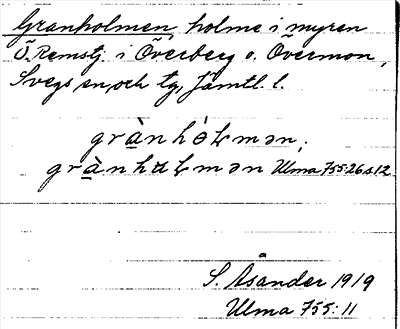 Granholmen, holme i myren
Ö. Remstj. i Överberg o. Övermon,
Svegs sn, och tg, Jämtl. l.
grànhòɫmən;
grànhɑɫmən Ulma 755:26 s. 12
S. Åsander 1919
Ulma 755: 11